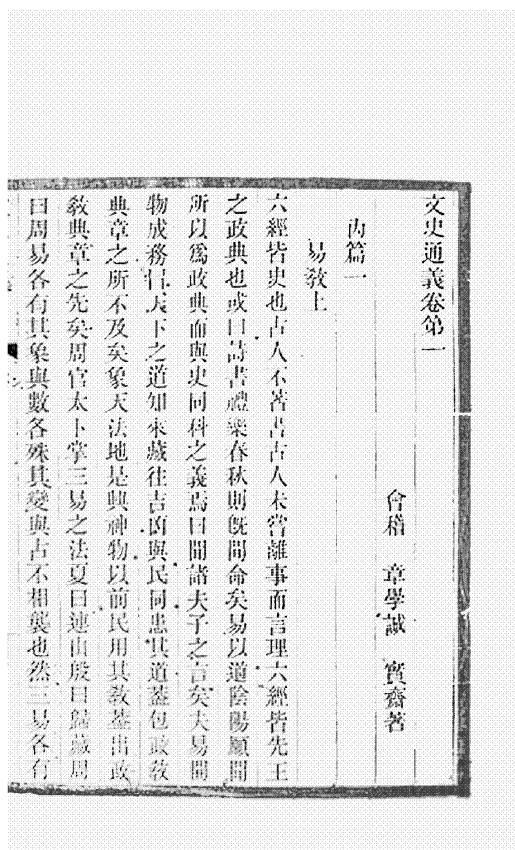 文史通義卷第一
會稽 章學誠 實齋著
內篇一
易敎上
六經皆史也古人不著書古人未嘗離事而言理六經皆先王
之政典也或曰詩書禮樂春秋則旣聞命矣易以道陰陽願聞
所以爲政典而與史同科之義焉曰聞諸夫子之言矣夫易開
物成務冒天下之道知來藏往吉凶與民同患其道蓋包政敎
典章之所不及矣象天法地是興神物以前民用其敎蓋出政
敎典章之先矣周官太卜掌三易之法夏曰連山殷曰歸藏周
曰周易各有其象與數各殊其變與占不相襲也然三易各有